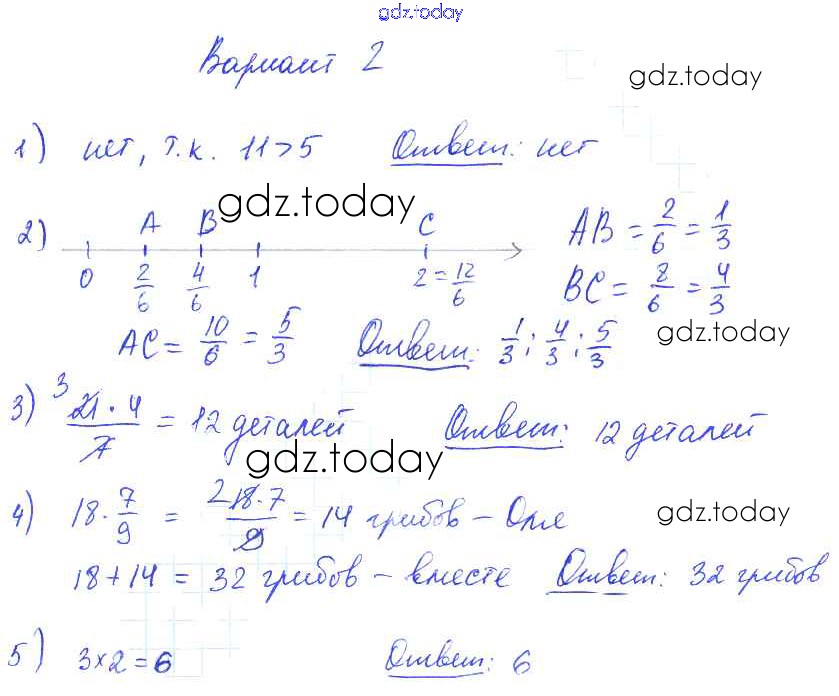 gdz.today
Вариант 2
gdz.today
1) нет, т.к. 11>5 Ответ: нет
gdz.today
2) A B C AB = 2/6 = 1/3
0 2/6 4/6 1 2 = 12/6 BC = 8/6 = 4/3
AC = 10/6 = 5/3 Ответ: 1/3; 4/3; 5/3
gdz.today
3) 3 21·4/7 = 12 деталей Ответ: 12 деталей
gdz.today
4) 18·7/9 = 2 18·7/9 = 14 грибов – Оля
gdz.today
18+14 = 32 грибов – вместе Ответ: 32 грибов
5) 3×2=6 Ответ: 6